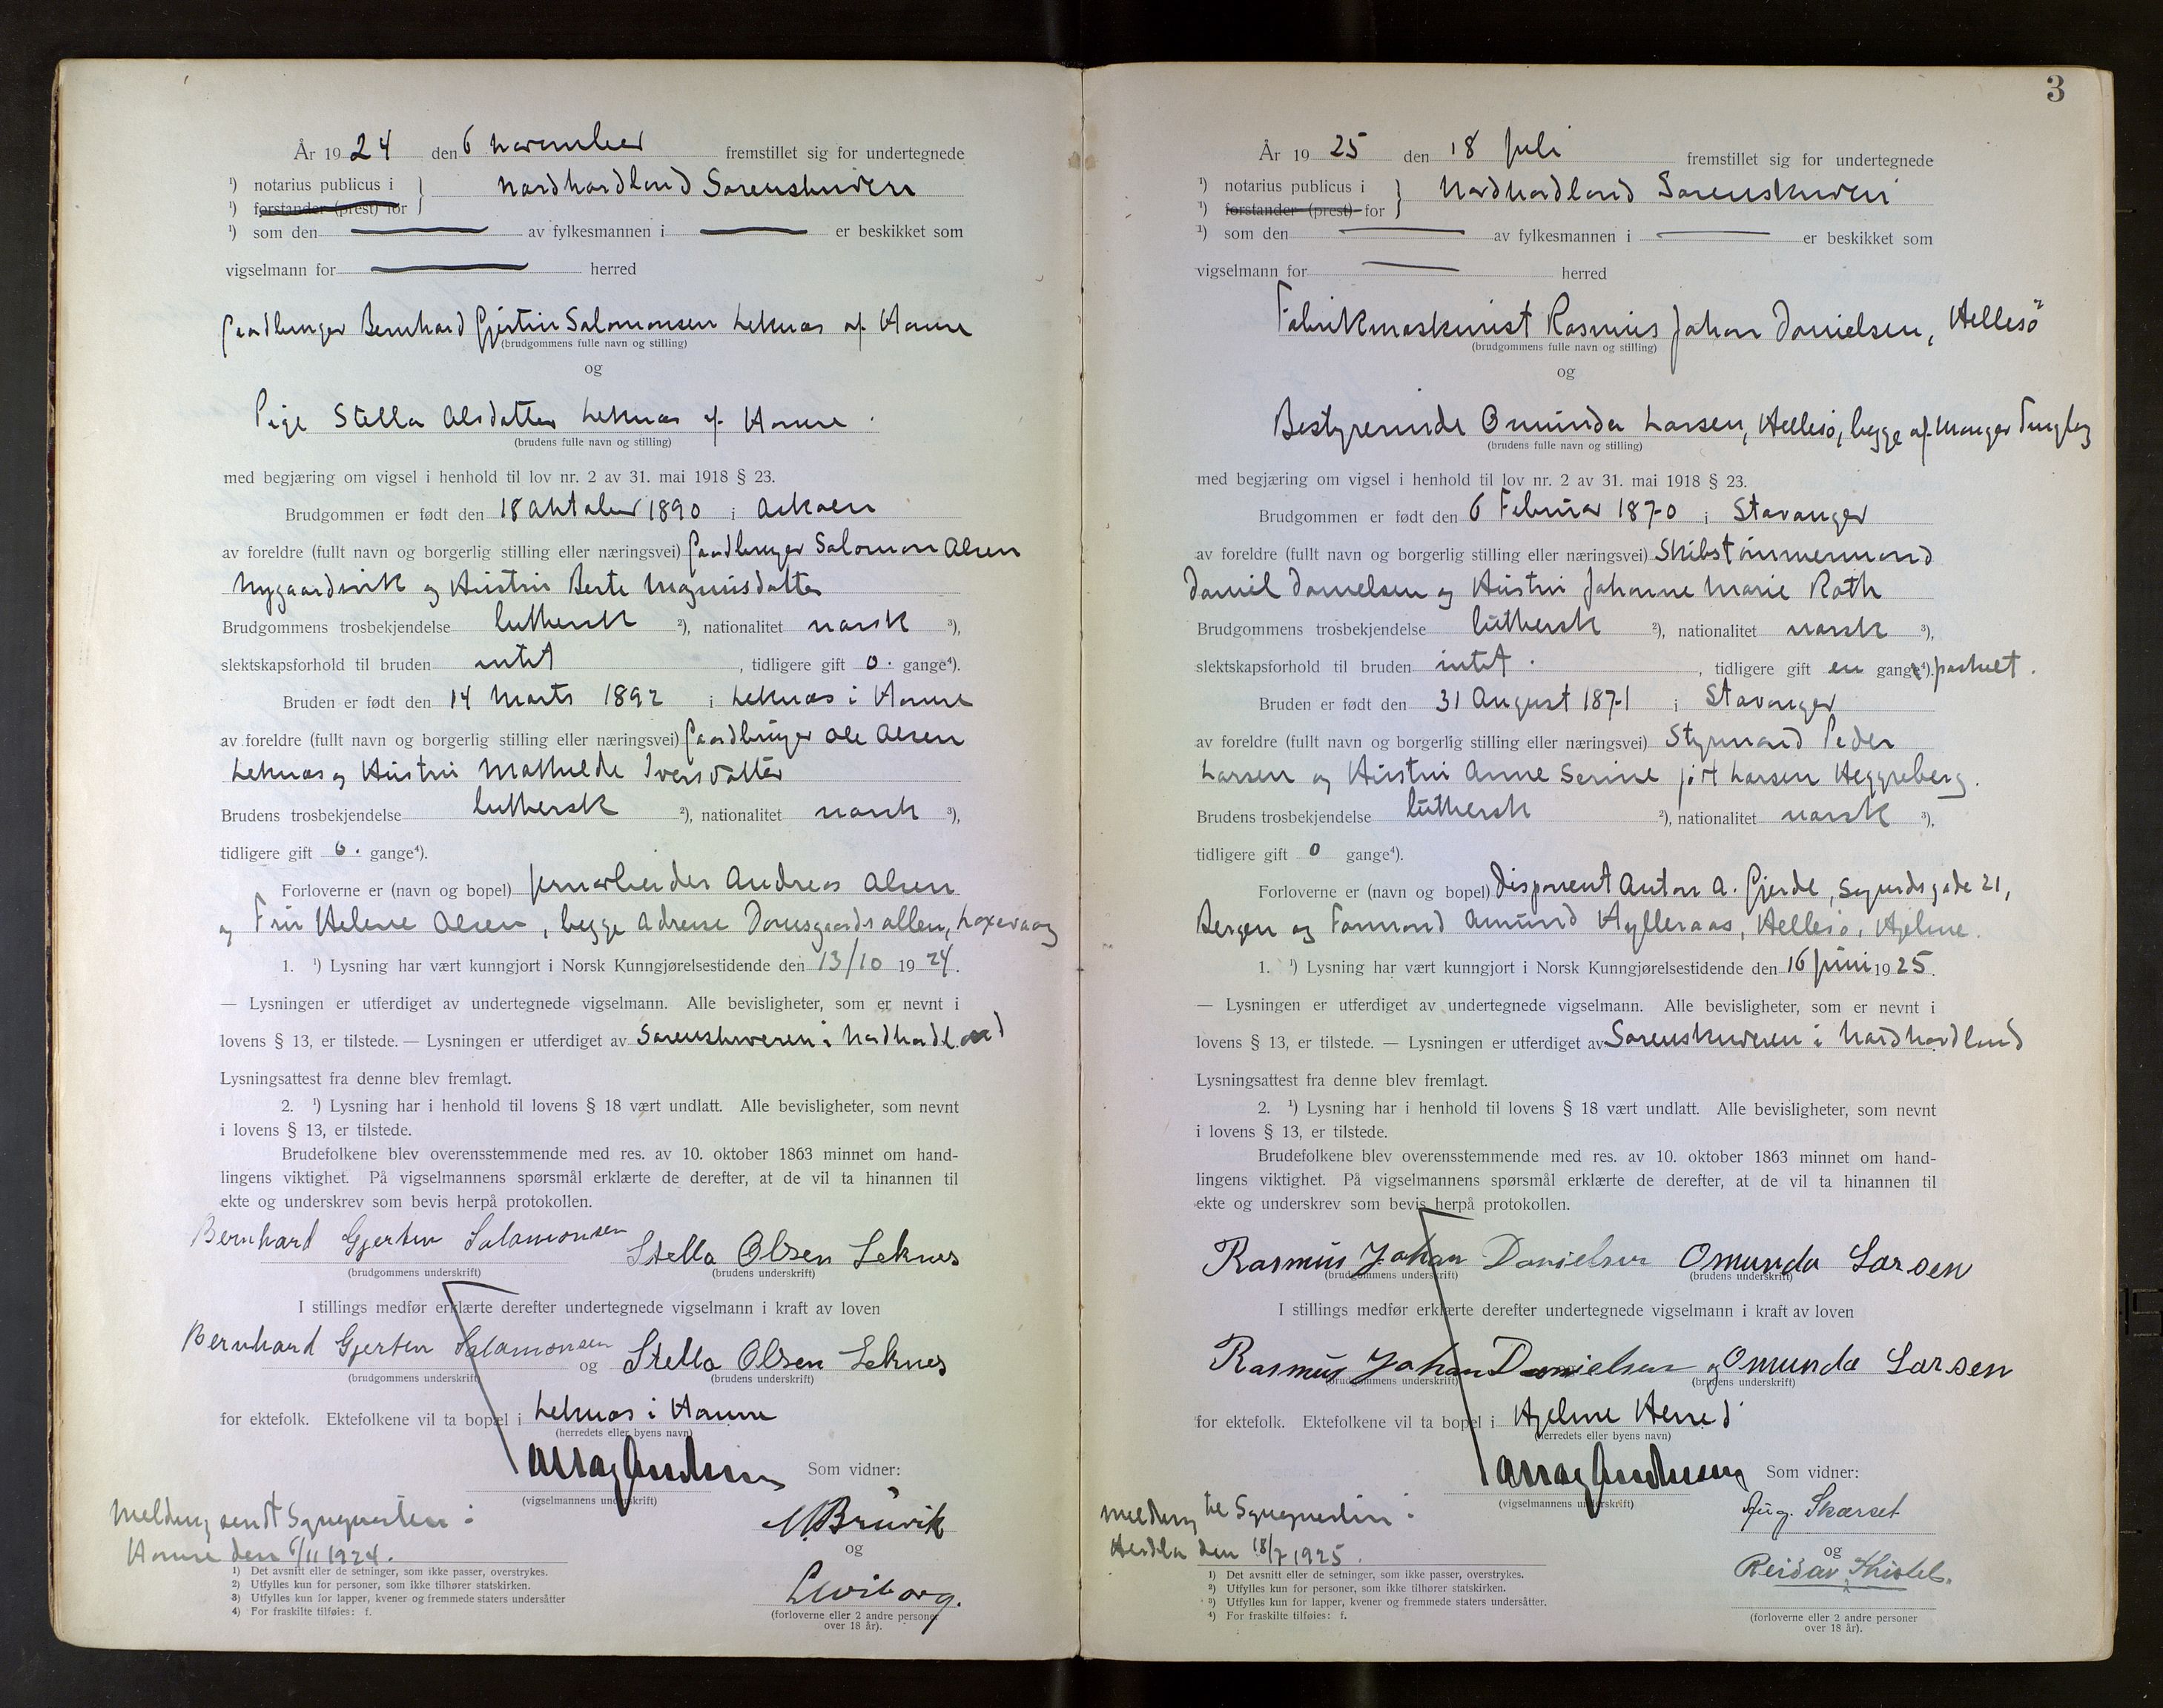 År 19 24 den 6 november fremstillet sig for undertegnede
¹) notarius publicus i
¹) forstander (prest) for
Nordhordland Sorenskriveri
¹) som den av fylkesmannen i er beskikket som
vigselmann for herred
Gaardbruger Bernhard Gjertin Salomonsen Leknæs af Hamre
(brudgommens fulle navn og stilling)
og
Pige Stella Olsdatter Leknæs af Hamre.
(brudens fulle navn og stilling)
med begjæring om vigsel i henhold til lov nr. 2 av 31. mai 1918 § 23.
Brudgommen er født den 18 Oktober 1890 i Askøen
av foreldre (fullt navn og borgerlig stilling eller næringsvei) Gaardbruger Salomon Olsen
Nygaardsvik og Hustru Berte Magnusdatter
Brudgommens trosbekjendelse luthersk ²), nationalitet norsk ³),
slektskapsforhold til bruden intet, tidligere gift 0. gange⁴).
Bruden er født den 14 Marts 1892 i Leknæs i Hamre
av foreldre (fullt navn og borgerlig stilling eller næringsvei) Gaardbruger Ole Olsen
Leknæs og Hustru Mathilde Iversdatter
Brudens trosbekjendelse luthersk ²), nationalitet norsk ³),
tidligere gift 0. gange⁴).
Forloverne er (navn og bopel) Jernarbeider Andreas Olsen
og Fru Helene Olsen, begge Adresse Damsgaardsalleen, Laxevaag
1. ¹) Lysning har vært kunngjort i Norsk Kunngjørelsestidende den 13/10 19 24.
— Lysningen er utferdiget av undertegnede vigselmann. Alle bevisligheter, som er nevnt i
lovens § 13, er tilstede. — Lysningen er utferdiget av Sorenskriveren i Nordhordland
Lysningsattest fra denne blev fremlagt.
2. ¹) Lysning har i henhold til lovens § 18 vært undlatt. Alle bevisligheter, som nevnt
i lovens § 13, er tilstede.
Brudefolkene blev overensstemmende med res. av 10. oktober 1863 minnet om hand-
lingens viktighet. På vigselmannens spørsmål erklærte de derefter, at de vil ta hinannen til
ekte og underskrev som bevis herpå protokollen.
Bernhard Gjertin Salamonsen Stella Olsen Leknes
(brudgommens underskrift) (brudens underskrift)
I stillings medfør erklærte derefter undertegnede vigselmann i kraft av loven
Bernhard Gjerten Salamonsen og Stella Olsen Leknes
(brudgommens underskrift) (brudens underskrift)
for ektefolk. Ektefolkene vil ta bopel i Leknæs i Hamre
(herredets eller byens navn)
Som vidner:
(vigselmannens underskrift)
Melding sendt Sognepresten i
Hamre den 6/11 1924.
M Bruvik
og
L Wiborg.
(forloverne eller 2 andre personer
over 18 år).
1) Det avsnitt eller de setninger, som ikke passer, overstrykes.
2) Utfylles kun for personer, som ikke tilhører statskirken.
3) Utfylles kun for lapper, kvener og fremmede staters undersåtter
4) For fraskilte tilføies: f.
3
År 19 25 den 18 Juli fremstillet sig for undertegnede
¹) notarius publicus i
¹) forstander (prest) for
Nordhordland Sorenskriveri
¹) som den av fylkesmannen i er beskikket som
vigselmann for herred
Fabrikmaskinist Rasmus Johan Danielsen, Hellesö
(brudgommens fulle navn og stilling)
og
Bestyrerinde Omunda Larsen, Hellesö, begge af Manger Tinglag
(brudens fulle navn og stilling)
med begjæring om vigsel i henhold til lov nr. 2 av 31. mai 1918 § 23.
Brudgommen er født den 6 Februar 1870 i Stavanger
av foreldre (fullt navn og borgerlig stilling eller næringsvei) Skibstömmermand
Daniel Danielsen og Hustru Johanne Marie Roth
Brudgommens trosbekjendelse luthersk ²), nationalitet norsk ³),
slektskapsforhold til bruden intet., tidligere gift en gang⁴).
Bruden er født den 31 August 1871 i Stavanger
av foreldre (fullt navn og borgerlig stilling eller næringsvei) Styrmand Peder
Larsen og Hustru Anne Serine født Larsen Heggreberg.
Brudens trosbekjendelse luthersk ²), nationalitet norsk ³),
tidligere gift 0 gange⁴).
Forloverne er (navn og bopel) Disponent Anton A. Gjerde, Sigurdsgade 21,
Bergen og Formand Amund Hylleraas, Hellesö, Hjelme.
1. ¹) Lysning har vært kunngjort i Norsk Kunngjørelsestidende den 16 juni 19 25.
— Lysningen er utferdiget av undertegnede vigselmann. Alle bevisligheter, som er nevnt i
lovens § 13, er tilstede. — Lysningen er utferdiget av Sorenskriveren i Nordhordland
Lysningsattest fra denne blev fremlagt.
2. ¹) Lysning har i henhold til lovens § 18 vært undlatt. Alle bevisligheter, som nevnt
i lovens § 13, er tilstede.
Brudefolkene blev overensstemmende med res. av 10. oktober 1863 minnet om hand-
lingens viktighet. På vigselmannens spørsmål erklærte de derefter, at de vil ta hinannen til
ekte og underskrev som bevis herpå protokollen.
Rasmus Johan Danielsen Omunda Larsen
(brudgommens underskrift) (brudens underskrift)
I stillings medfør erklærte derefter undertegnede vigselmann i kraft av loven
Rasmus Johan Danielsen og Omunda Larsen
(brudgommens underskrift) (brudens underskrift)
for ektefolk. Ektefolkene vil ta bopel i Hjelme Herred
(herredets eller byens navn)
Som vidner:
(vigselmannens underskrift)
Melding til Sognepresten i
Herdla den 18/7 1925.
Aug. Skarset
og
Reidar
(forloverne eller 2 andre personer
over 18 år).
1) Det avsnitt eller de setninger, som ikke passer, overstrykes.
2) Utfylles kun for personer, som ikke tilhører statskirken.
3) Utfylles kun for lapper, kvener og fremmede staters undersåtter.
4) For fraskilte tilføies: f.